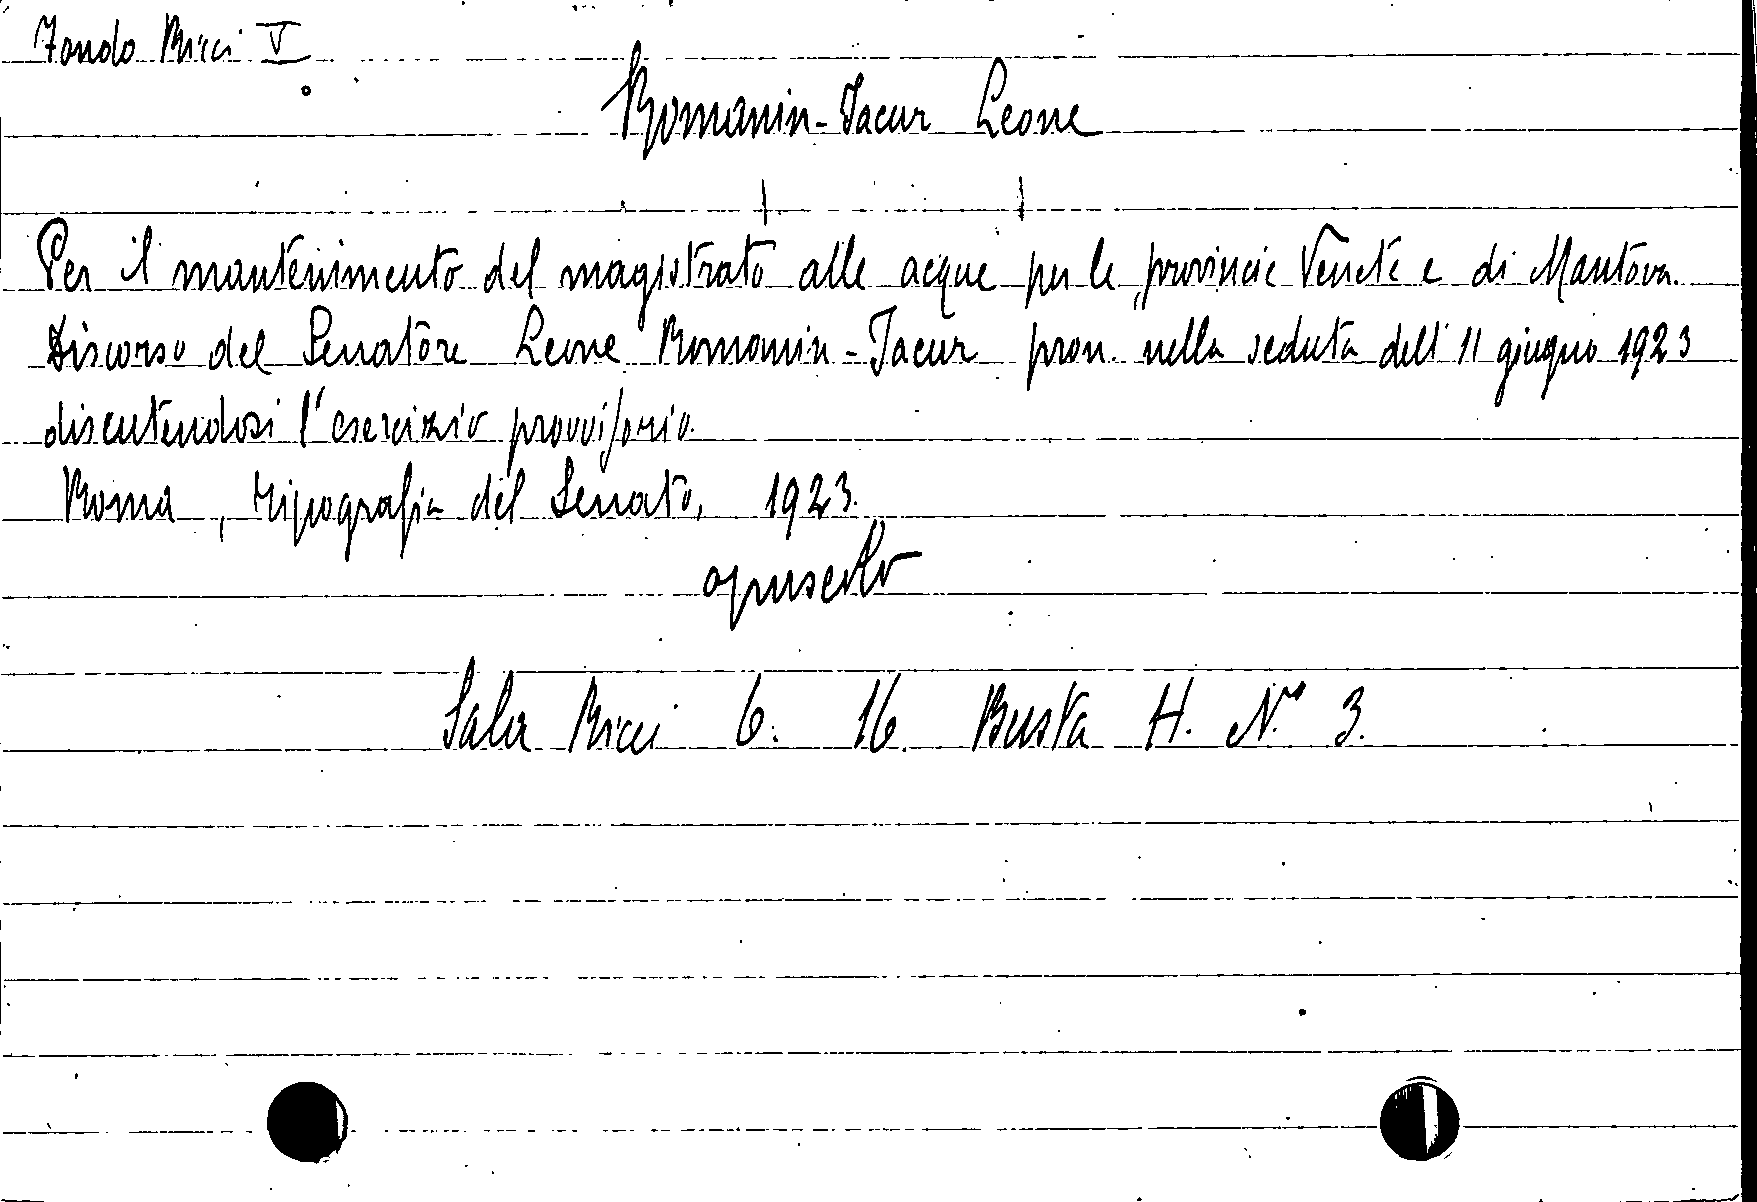 Fondo Ricci V
Romanin-Jacur Leone
Per il mantenimento del magistrato alle acque per le provincie Venete e di Mantova.
Discorso del Senatore Leone Romanin-Jacur pron. nella seduta dell'11 giugno 1923
discutendosi l'esercizio provvisorio.
Roma, tipografia del Senato, 1923.
opuscolo
Sala Ricci 6. 16. Busta H. N.º 3.